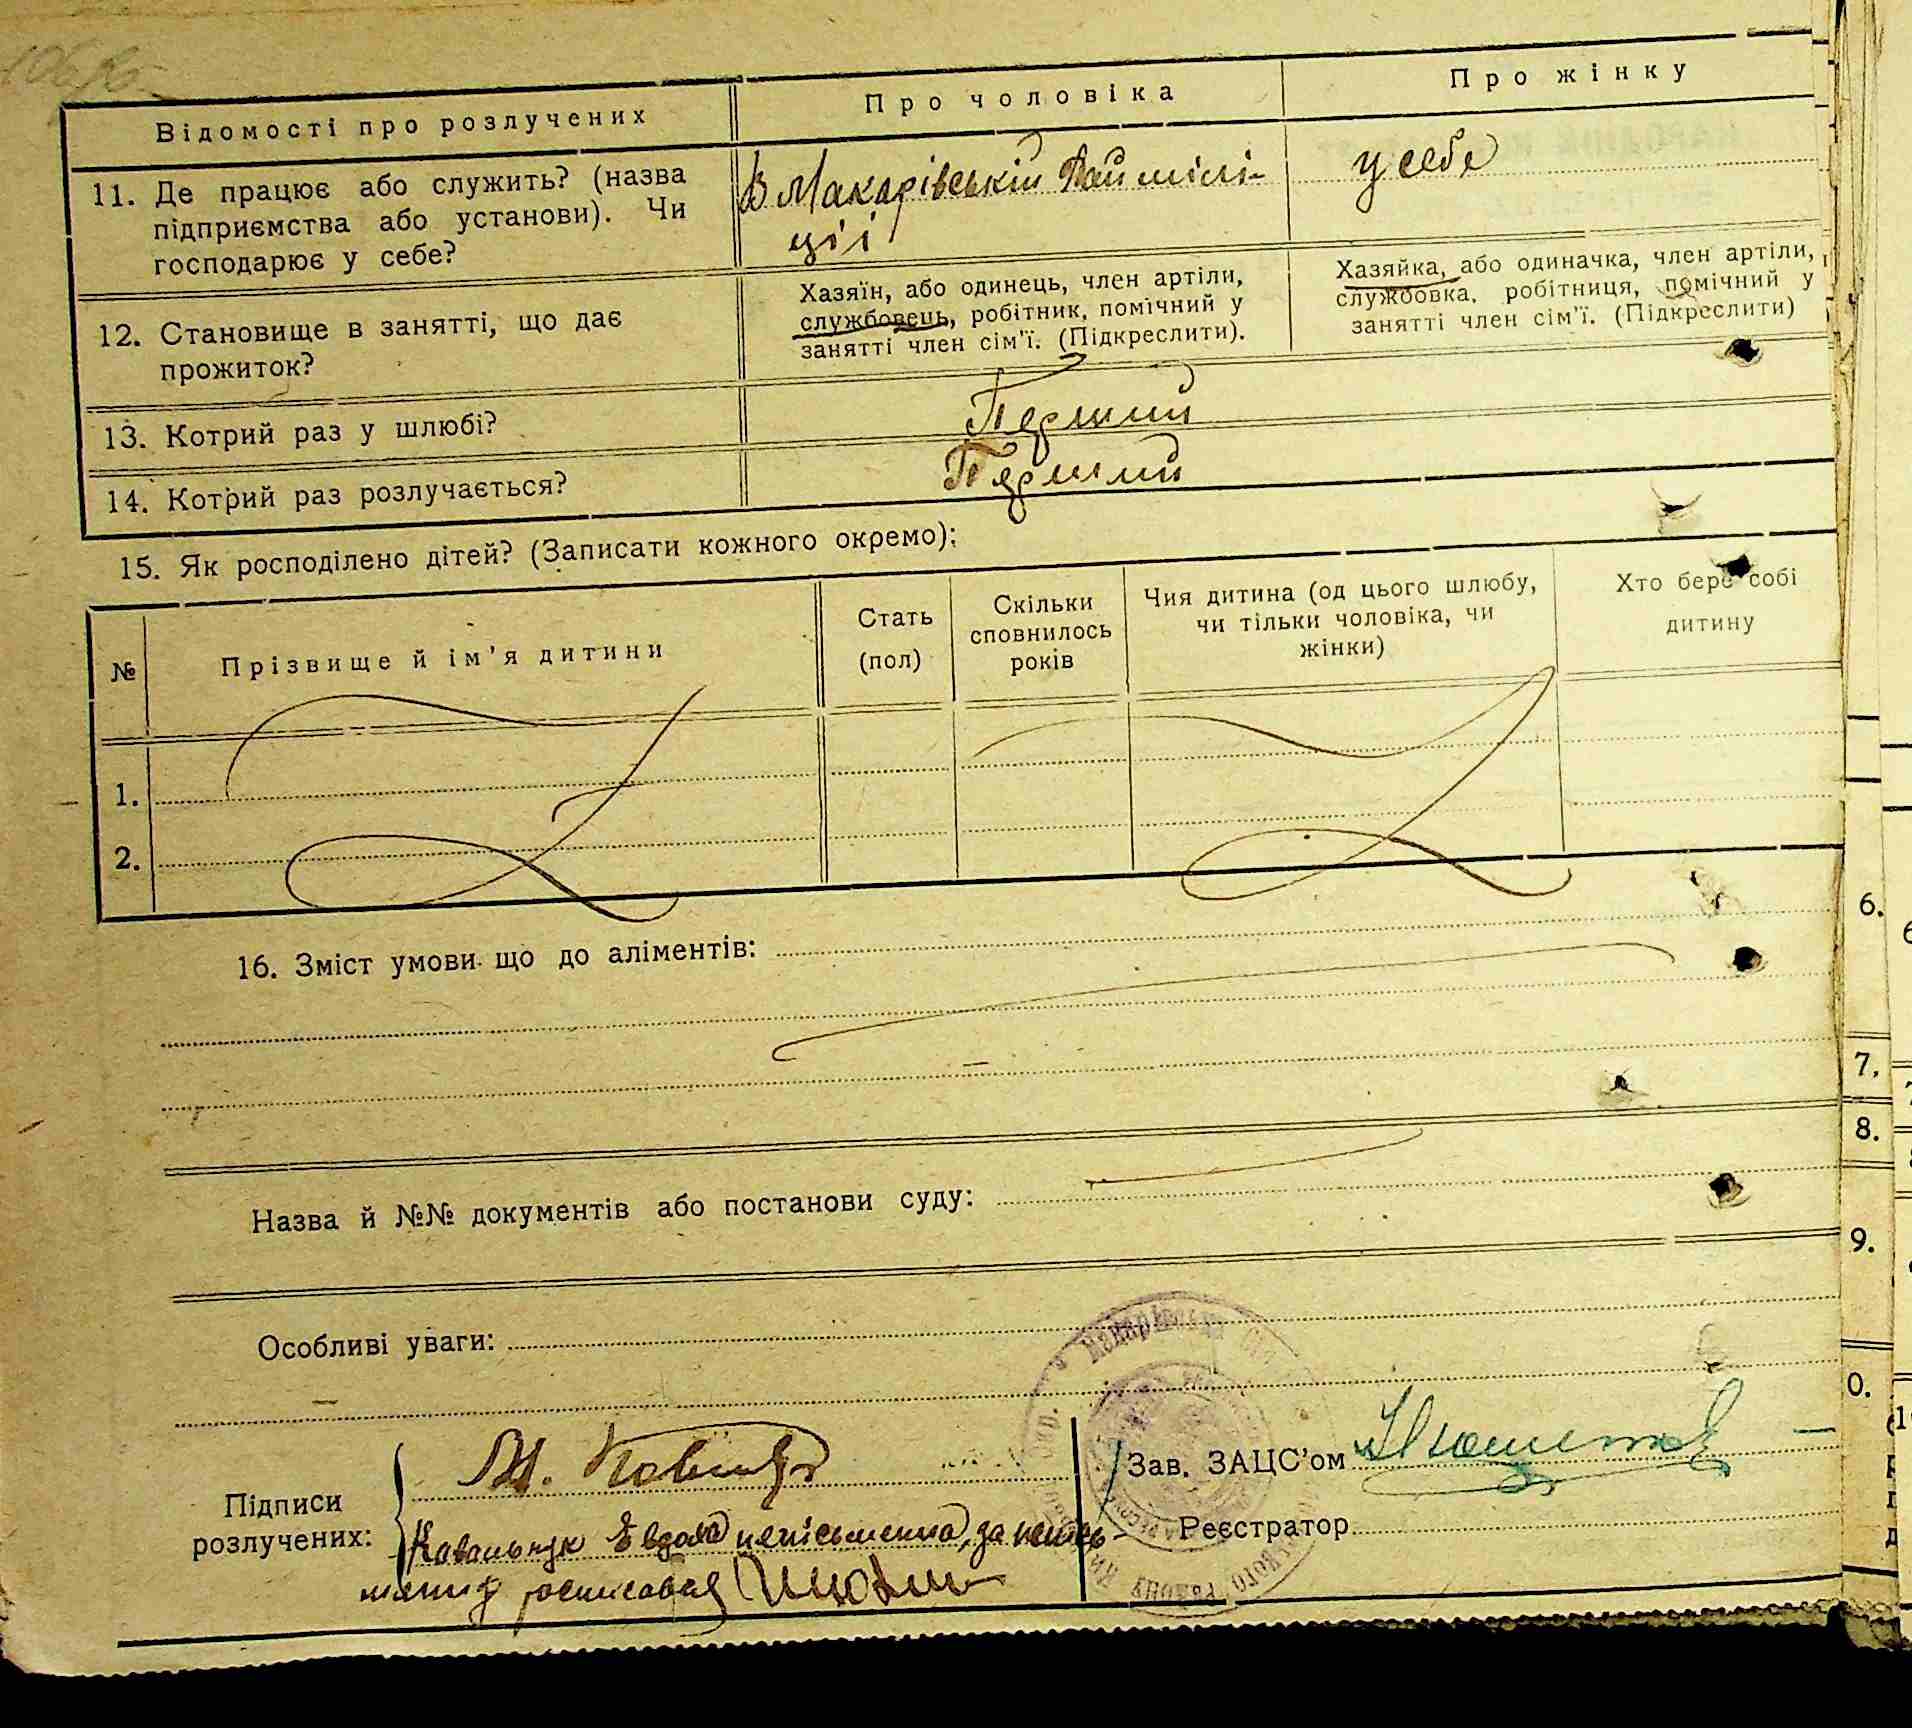 Відомості про розлучених
Про чоловіка
Про жінку
11. Де працює або служить? (назва
підприємства або установи). Чи
господарює у себе?
В Макарівській Рай міліції
у себе
12. Становище в занятті, що дає
прожиток?
Хазяїн, або одинець, член артіли,
службовець, робітник, помічний у
занятті член сім'ї. (Підкреслити).
Хазяйка, або одиначка, член артіли,
службовка, робітниця, помічний у
занятті член сім'ї. (Підкреслити)
13. Котрий раз у шлюбі?
Перший
14. Котрий раз розлучається?
Перший
15. Як росподілено дітей? (Записати кожного окремо);
№
Прізвище й ім'я дитини
Стать
(пол)
Скільки
сповнилось
років
Чия дитина (од цього шлюбу,
чи тільки чоловіка, чи
жінки)
Хто бере собі
дитину
1.
2.
16. Зміст умови що до аліментів:
Назва й №№ документів або постанови суду:
Особливі уваги:
Підписи
розлучених:
М.
Ковальчук Евдока неписьменна, за
росписався
Зав. ЗАЦС'ом
Реєстратор
6.
7.
8.
9.
0.